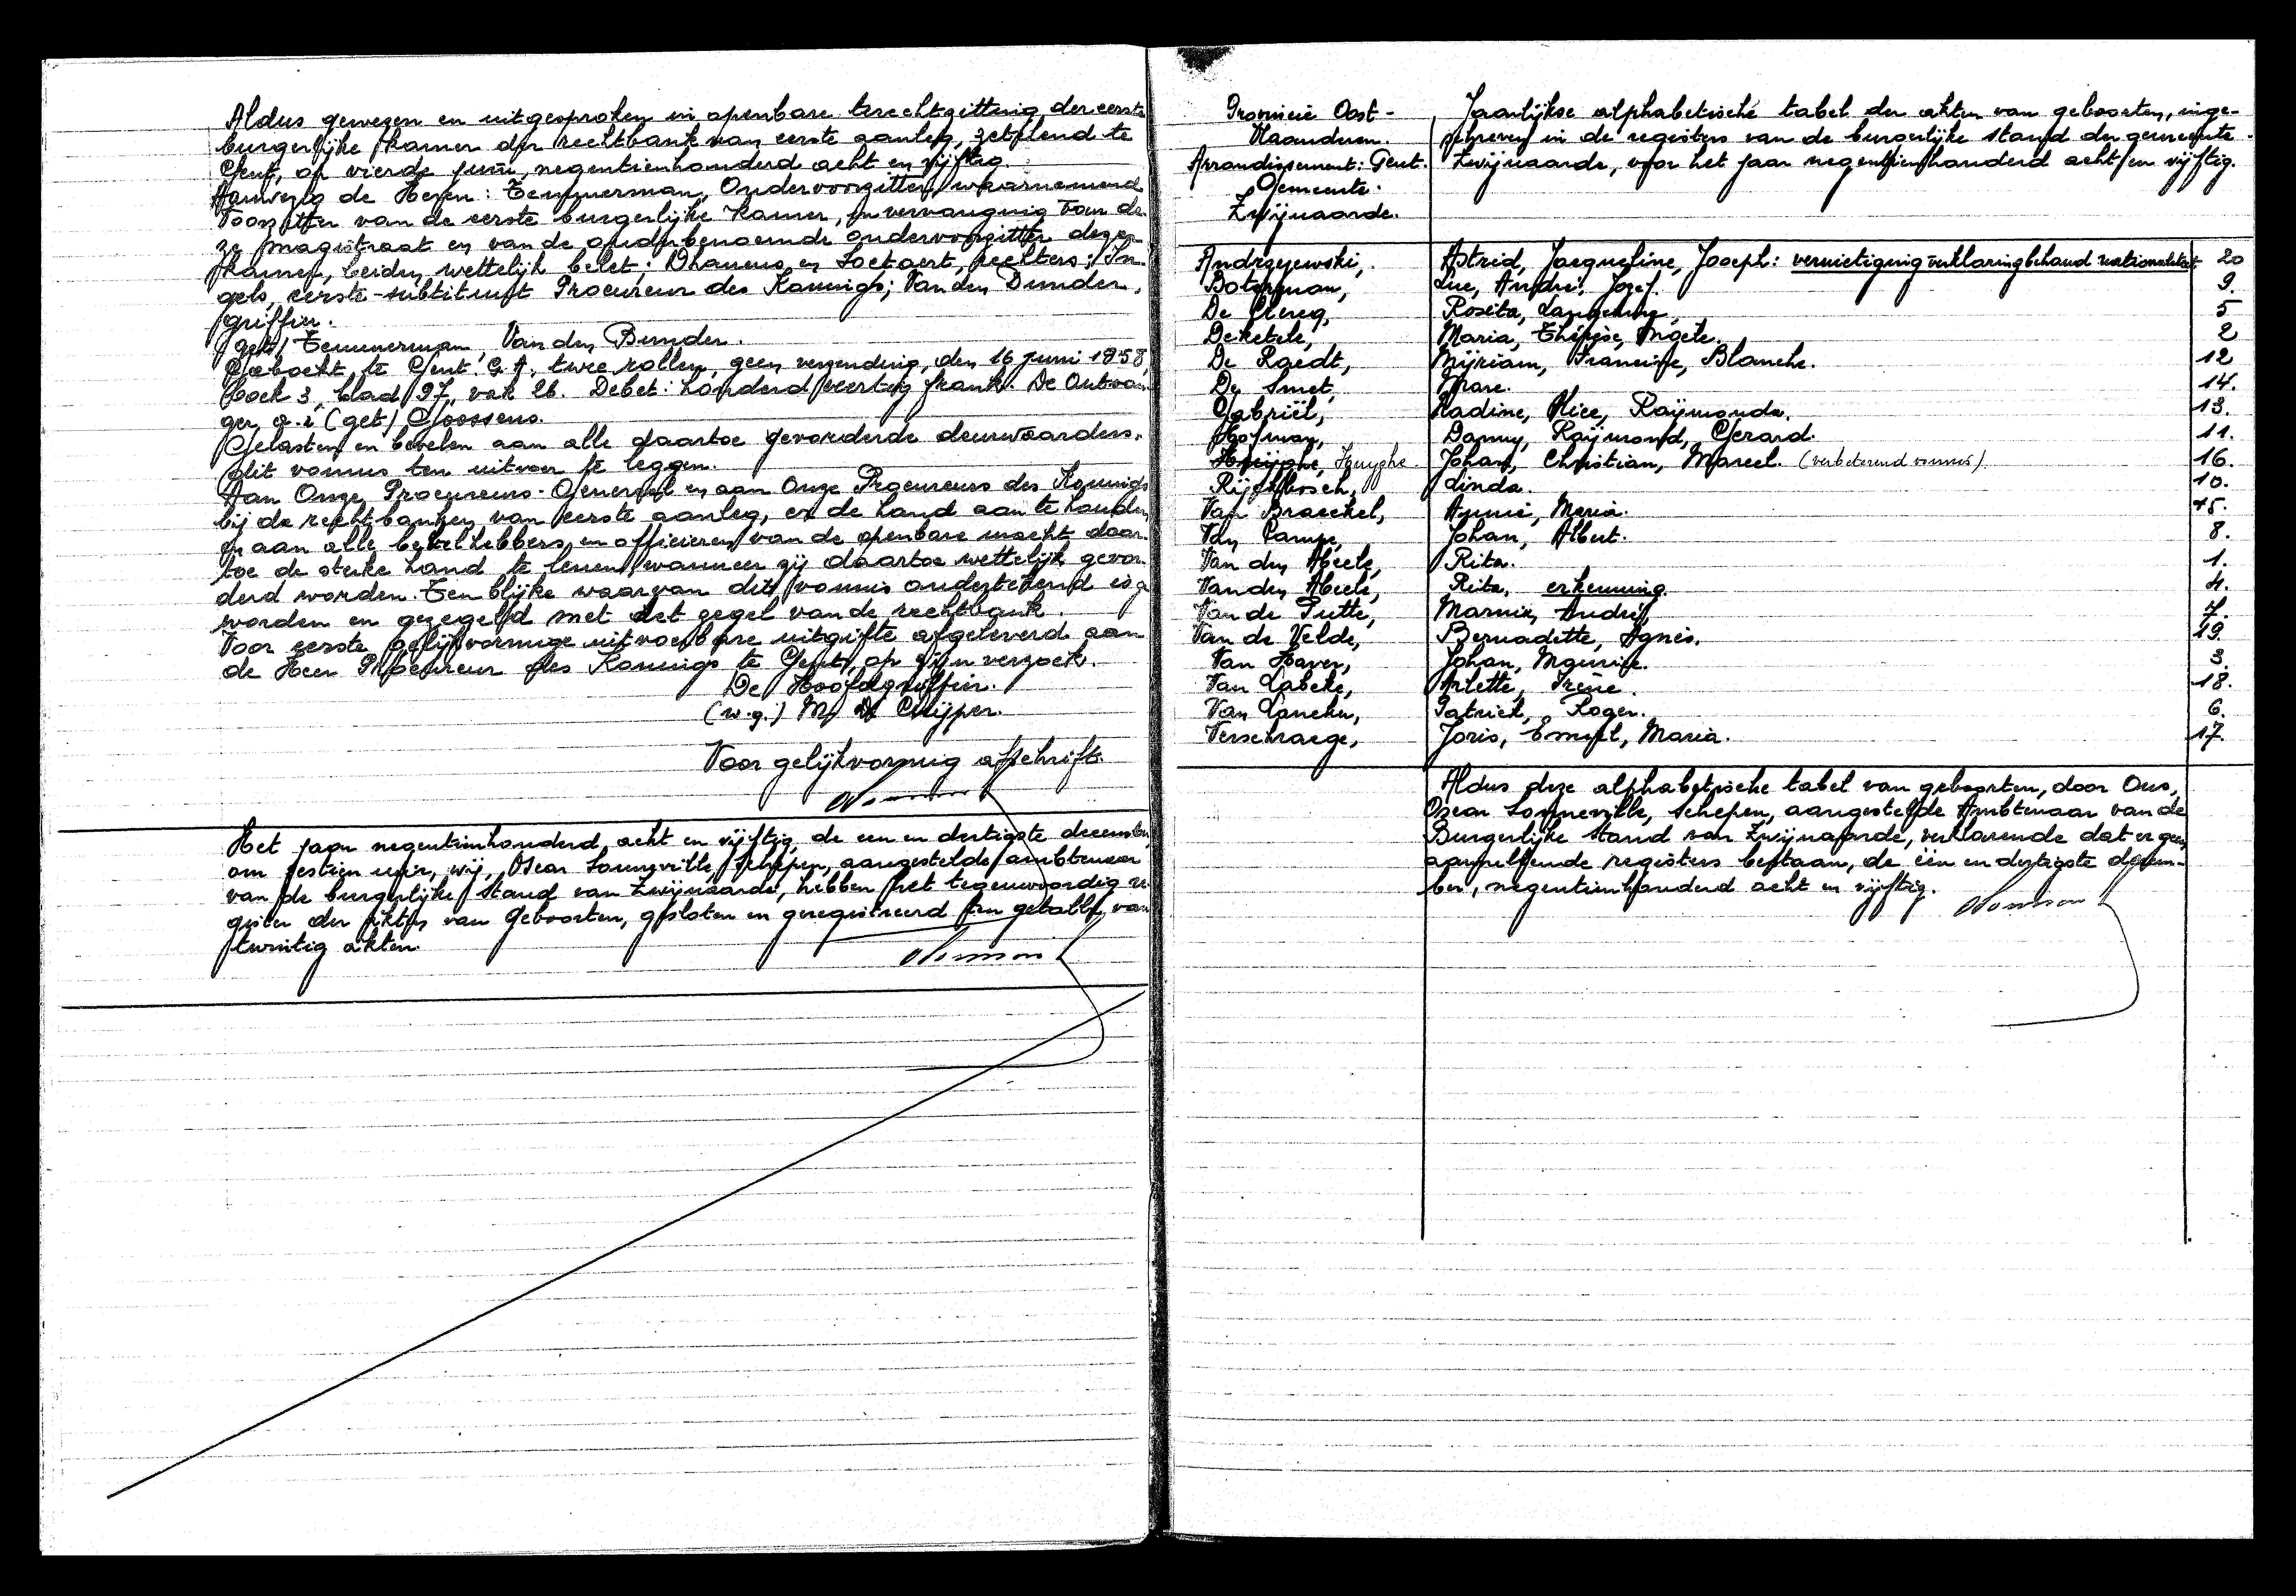 Aldus gewezen en uitgesproken in openbare terechtzitting der eerste
burgerlijke kamer der rechtbank van eerste aanleg, zetelend te
Gent, op vierde juni, negentienhonderd acht en vijftig.
Aanwezig de Heren: Temmerman, Ondervoorzitter, waarnemend
Voorzitter van de eerste burgerlijke kamer, in vervanging van de-
ze magistraat en van de ouderbenoemde ondervoorzitter dezer
kamer, beiden wettelijk belet; Dhaenens en Soetaert, rechters; In-
gels, eerste-substituut Procureur des Konings; Van den Bunder,
griffier.
(get) Temmerman, Van den Bunder.
Geboekt te Gent G.A. twee rollen, geen verzending, den 16 juni 1958,
boek 3, blad 97, vak 26. Debet: honderd veertig frank. De Ontvan-
ger, a.i (get) Goossens.
Gelasten en bevelen aan alle daartoe gevorderde deurwaarders,
dit vonnis ten uitvoer te leggen.
Aan Onze Procureurs-Generaal en aan Onze Procureurs des Konings
bij de rechtbanken van eerste aanleg, er de hand aan te houden
en aan alle bevelhebbers en officieren van de openbare macht daar-
toe de sterke hand te lenen, wanneer zij daartoe wettelijk gevor-
derd worden. Ten blijke waarvan dit vonnis ondertekend is ge
worden en gezegeld met het zegel van de rechtbank.
Voor eerste gelijkvormige uitvoerbare uitgifte afgeleverd aan
de Heer Procureur des Konings te Gent, op zijn verzoek.
De Hoofdgriffier.
(w.g.) M. De Cuijper.
Voor gelijkvormig afschrift.
Het jaar negentienhonderd acht en vijftig, de een en dertigste december,
om zestien uur, wij, Oscar Sonneville, Schepen, aangestelde ambtenaar
van de burgerlijke stand van Zwijnaarde, hebben het tegenwoordig re-
gister der akten van Geboorten, gesloten en geregistreerd ten getalle van
twintig akten.
Provincie Oost-
Vlaanderen.
Arrondissement: Gent.
Gemeente.
Zwijnaarde.
Jaarlijkse alphabetische tabel der akten van geboorten, inge-
schreven in de registers van de burgerlijke stand der gemeente
Zwijnaarde, voor het jaar negentienhonderd acht en vijftig.
Andrzejewski, Astrid, Jacqueline, Joseph: vernietiging verklaring behoud nationaliteit 20
Boterman, Luc, André, Jozef. 9.
De Clercq, Rosita, 5
Deketele, Maria, Thérèse, Angèle. 2
De Raedt, Mijriam, Francine, Blanche. 12
De Smet, Marc. 14.
Gabriël, Nadine, Alice, Raijmonda. 13.
Hofman, Danny, Raijmond, Gerard. 11.
Huijghe, Huyghe Johan, Christian, Marcel. (verbeterend vonnis) 16.
Rijckbosch, Linda. 10.
Van Braeckel, Annie, Maria. 15.
Van Campe, Johan, Albert. 8.
Van den Abeele, Rita. 1.
Van den Abeele, Rita, erkenning. 4.
Van de Putte, Marnix, André, 7.
Van de Velde, Bernadette, Agnès. 19.
Van Haver, Johan, Maurice. 3.
Van Labeke, Arlette, Irène. 18.
Van Lancker, Patrick, Roger. 6.
Verschraege, Joris, Emiel, Maria. 17.
Aldus deze alphabetische tabel van geboorten, door Ons,
Oscar Sonneville, Schepen, aangestelde Ambtenaar van de
Burgerlijke Stand van Zwijnaarde, verklarende dat er geen
aanvullende registers bestaan, de één en dertigste decem-
ber, negentienhonderd acht en vijftig.